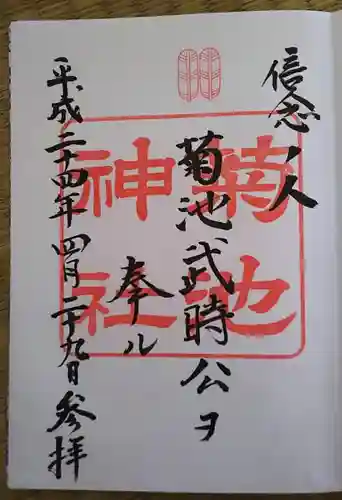 信念ノ人
菊池武時公ヲ
奉ル
平成二十四年四月二十九日参拝
菊池
神社